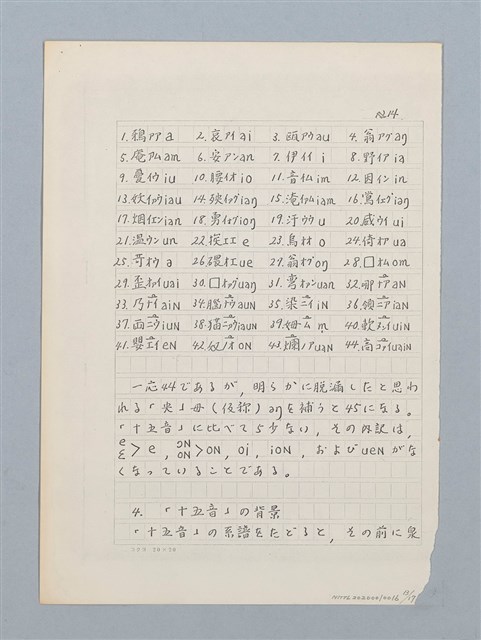 No.14.
1. 鴉アア a 2. 哀アイ ai 3. 甌アウ au 4. 翁アグ aŋ
5. 庵アム am 6. 安アン an 7. 伊イイ i 8. 野イア ia
9. 憂イウ iu 10. 腰イオ io 11. 音イム im 12. 因イン in
13. 妖イアウ iau 14. 殃イアグ iaŋ 15. 淹イアム iam 16. 鶯イエグ iəŋ
17. 烟イエン ian 18. 勇イオグ ioŋ 19. 汙ウウ u 20. 威ウイ ui
21. 温ウン un 22. 挨エエ e 23. 烏オオ o 24. 倚オア ua
25. 苛オウ ə 26. 猥オエ ue 27. 翁オグ oŋ 28. □オム om
29. 歪オアイ uai 30. □オアグ uaŋ 31. 彎オアン uan 32. 那アア aN
33. 乃アイ aiN 34. 腦アウ auN 35. 染ニイ iN 36. 領ニア iaN
37. 面ニウ iuN 38. 猫ニアウ iauN 39. 姆ーム m 40. 軟オイ uiN
41. 嬰エイ eN 42. 奴ノオ oN 43. 爛ノア uaN 44. 高コアイ uaiN
一応44であるが，明らかに脱漏したと思わ
れる「央」母（仮称）əŋを補うと45になる。
「十五音」に比べて5少ない，その内訳は，
e/ɛ > e，ɔN/oN > oN，oi，ioN，およびueNがな
くなっていることである。
4. 「十五音」の背景
「十五音」の系譜をたどると，その前に泉
コクヨ 20×20
NMTL20200010016 13/17